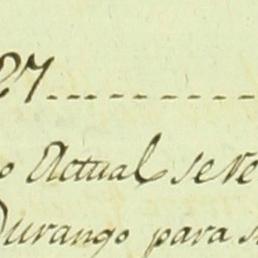 27
Actual se ve
Durango para